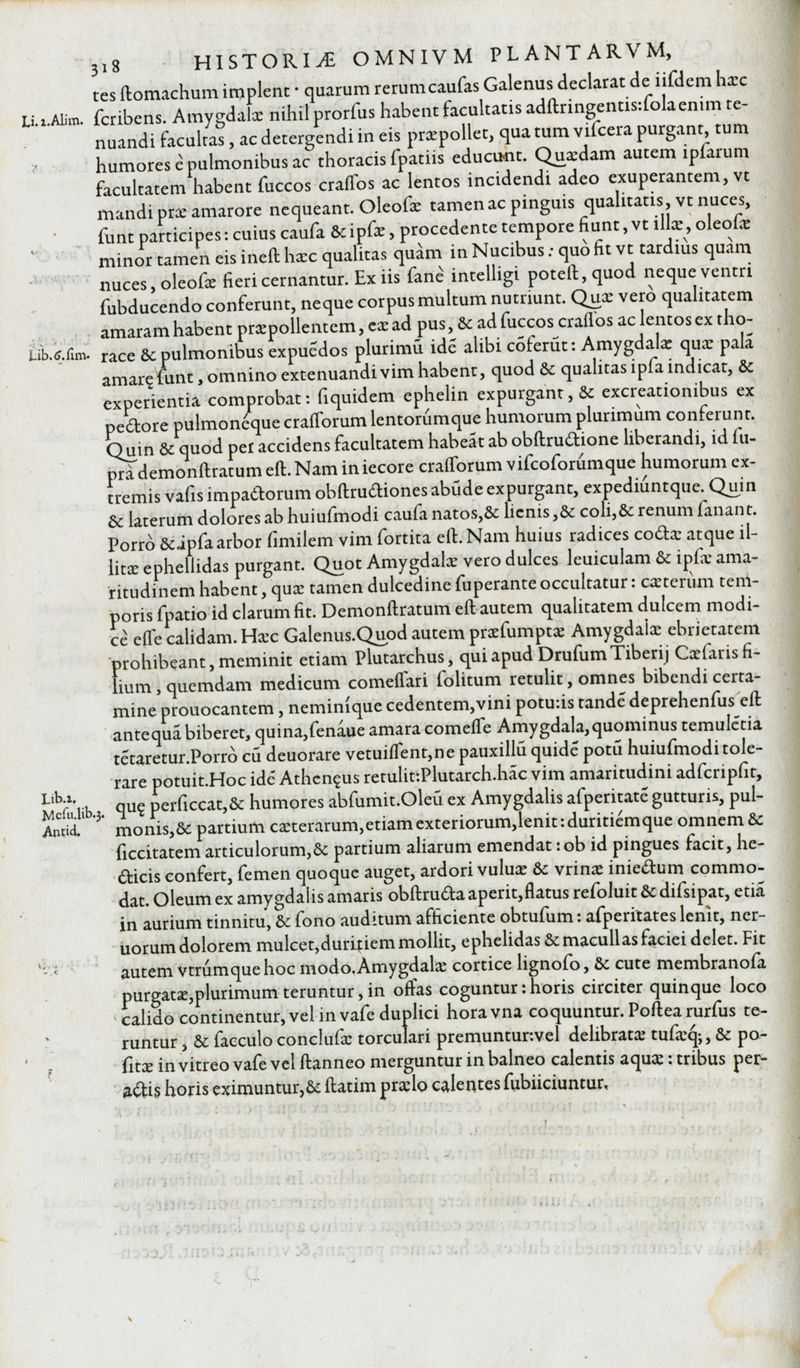 318 HISTORIÆ OMNIVM PLANTARVM,
tes ſtomachum implent · quarum rerum cauſas Galenus declarat de iiſdem hæc
Li.2.Alim. ſcribens. Amygdalæ nihil prorſus habent facultatis adſtringentis:ſola enim te-
nuandi facultas, ac detergendi in eis præpollet, qua tum viſcera purgant, tum
humores è pulmonibus ac thoracis ſpatiis educunt. Quædam autem ipſarum
facultatem habent ſuccos craſſos ac lentos incidendi adeo exuperantem, vt
mandi præ amarore nequeant. Oleoſæ tamen ac pinguis qualitatis, vt nuces,
ſunt participes: cuius cauſa & ipſæ, procedente tempore fiunt, vt illæ, oleoſæ
minor tamen eis ineſt hæc qualitas quàm in Nucibus: quò fit vt tardius quàm
nuces, oleoſæ fieri cernantur. Ex iis ſanè intelligi poteſt, quod neque ventri
ſubducendo conferunt, neque corpus multum nutriunt. Quæ verò qualitatem
amaram habent præpollentem, eæ ad pus, & ad ſuccos craſſos ac lentos ex tho-
Lib.6.ſim. race & pulmonibus expuẽdos plurimũ idẽ alibi cõferũt: Amygdalæ quæ palã
amarę ſunt, omnino extenuandi vim habent, quod & qualitas ipſa indicat, &
experientia comprobat: ſiquidem ephelin expurgant, & excreationibus ex
pectore pulmonéque craſſorum lentorúmque humorum plurimùm conferunt.
Quin & quod per accidens facultatem habeãt ab obſtructione liberandi, id ſu-
prà demonſtratum eſt. Nam in iecore craſſorum viſcoſorúmque humorum ex-
tremis vaſis impactorum obſtructiones abũde expurgant, expediuntque. Quin
& laterum dolores ab huiuſmodi cauſa natos,& lienis,& coli,& renum ſanant.
Porrò & ipſa arbor ſimilem vim ſortita eſt. Nam huius radices coctæ atque il-
litæ ephellidas purgant. Quot Amygdalæ vero dulces leuiculam & ipſæ ama-
ritudinem habent, quæ tamen dulcedine ſuperante occultatur: cæterùm tem-
poris ſpatio id clarum fit. Demonſtratum eſt autem qualitatem dulcem modi-
cè eſſe calidam. Hæc Galenus.Quod autem præſumptæ Amygdalæ ebrietatem
prohibeant, meminit etiam Plutarchus, qui apud Druſum Tiberij Cæſaris fi-
lium, quemdam medicum comeſſari ſolitum retulit, omnes bibendi certa-
mine prouocantem, neminíque cedentem,vini potu:is tandẽ deprehenſus eſt
antequã biberet, quina,ſenáue amara comeſſe Amygdala,quominus temulẽtia
tẽtaretur.Porrò cũ deuorare vetuiſſent,ne pauxillũ quidẽ potũ huiuſmodi tole-
rare potuit.Hoc idẽ Athenęus retulit:Plutarch.hãc vim amaritudini adſcripſit,
Lib.2. Meſu.lib.3. Antid. quę perſiccat,& humores abſumit.Oleũ ex Amygdalis aſperitatẽ gutturis, pul-
monis,& partium cæterarum,etiam exteriorum,lenit:duritiémque omnem &
ſiccitatem articulorum,& partium aliarum emendat:ob id pingues facit, he-
cticis confert, ſemen quoque auget, ardori vuluæ & vrinæ iniectum commo-
dat. Oleum ex amygdalis amaris obſtructa aperit,flatus reſoluit & diſsipat, etiã
in aurium tinnitu, & ſono auditum afficiente obtuſum: aſperitates lenit, ner-
uorum dolorem mulcet,duritiem mollit, ephelidas & macullas faciei delet. Fit
autem vtrúmque hoc modo.Amygdalæ cortice lignoſo, & cute membranoſa
purgatæ,plurimum teruntur, in offas coguntur:horis circiter quinque loco
calido continentur, vel in vaſe duplici hora vna coquuntur. Poſtea rurſus te-
runtur, & ſacculo concluſæ torculari premuntur:vel delibratæ tuſæq́;, & po-
ſitæ in vitreo vaſe vel ſtanneo merguntur in balneo calentis aquæ: tribus per-
actis horis eximuntur,& ſtatim prælo calentes ſubiiciuntur.